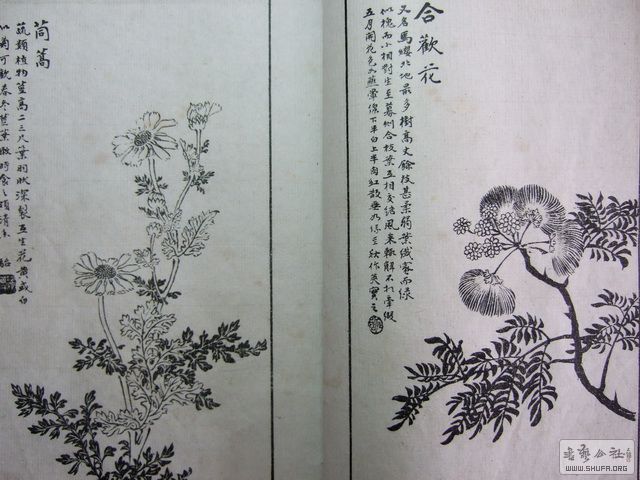 合歡花
又名馬纓北地最多樹高丈餘枝甚柔弱葉纖密而綠
似槐而小相對生至暮則合枝葉互相交結風來輒解不相牽綴
五月開花色如蘸暈線下半白上半肉紅散垂如絲至秋作莢實
茼蒿
蔬類植物莖高二三尺葉羽狀深裂互生花黃或白
似菊可飲春冬莖葉嫩時食之頗清香
書藝公社
WWW.SHUFA.ORG